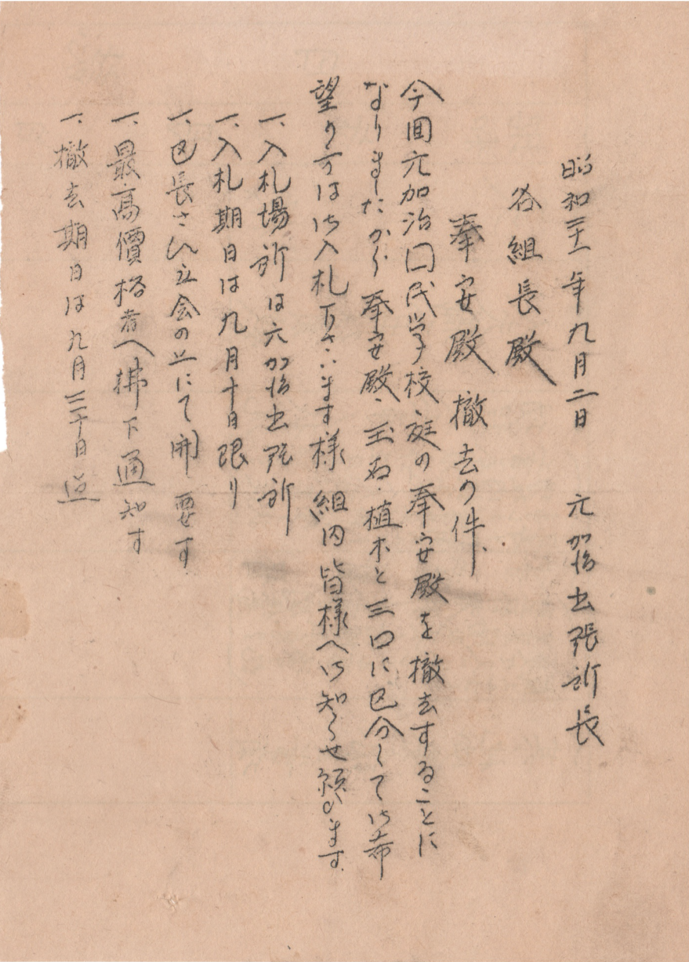 昭和二十一年九月二日 元加治出張所長
各組長殿
奉安殿撤去の件
今回元加治国民学校庭の奉安殿を撤去することに
なりましたから奉安殿、玉石、植木と三口に区分して御希
望の方は御入札下さいます様組内皆様へ御知らせ願ひます
一、入札場所は元加治出張所
一、入札期日は九月十日限り
一、区長さん立会の上にて開票す
一、最高價格者へ拂下通知す
一、撤去期日は九月三十日迄